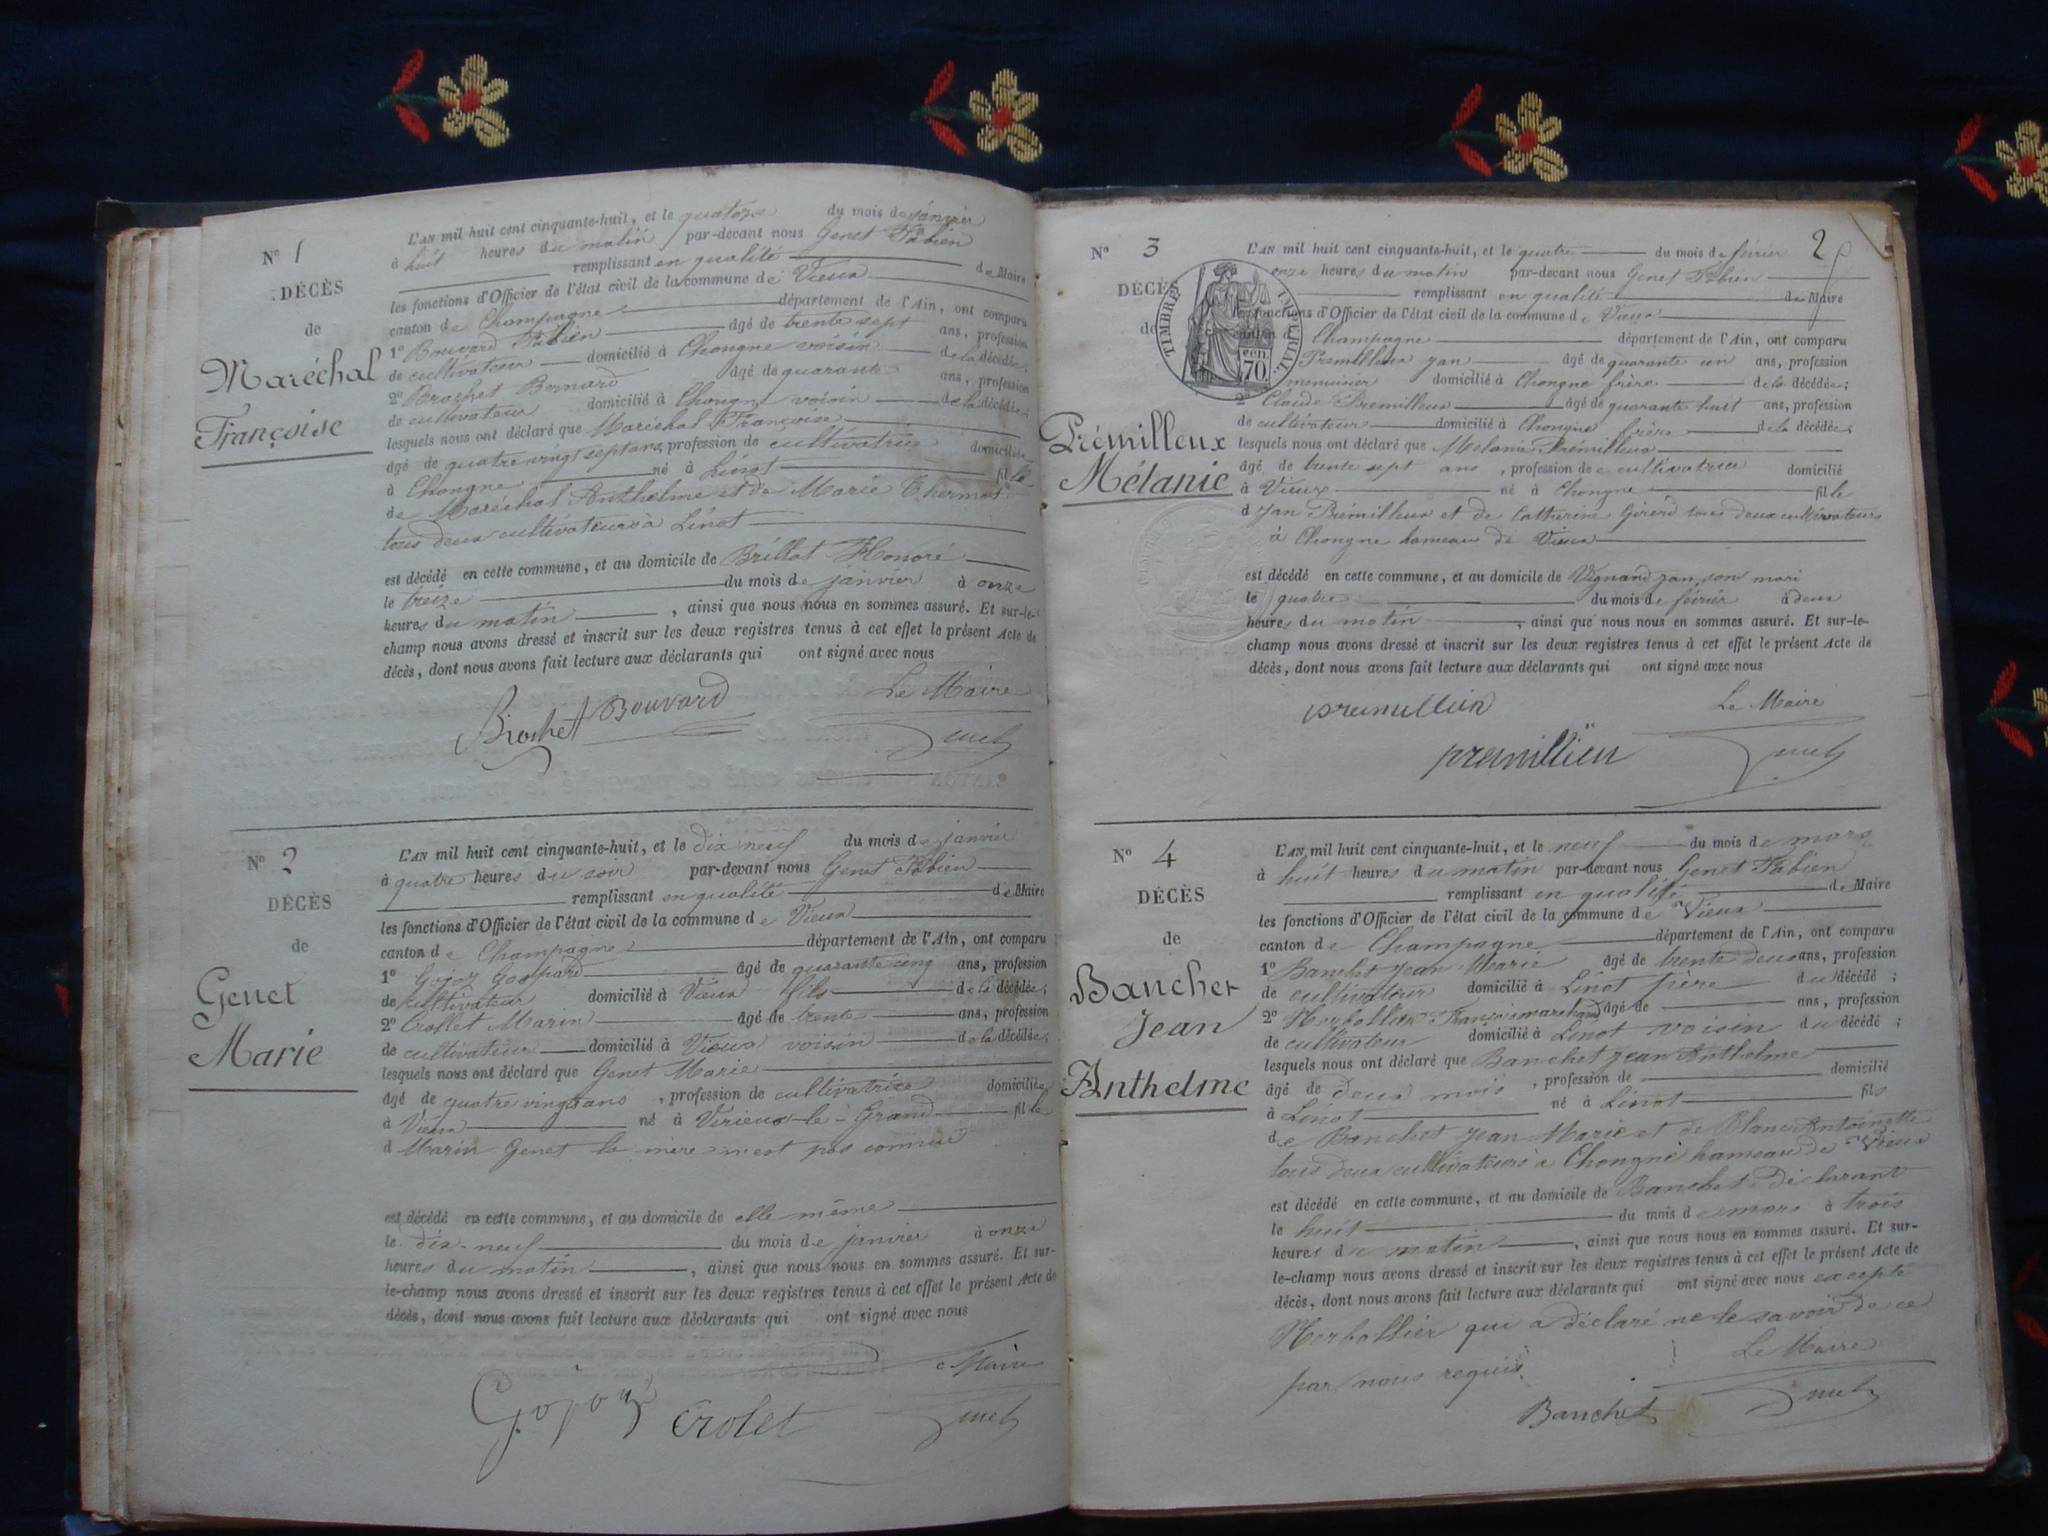 N° 1
DÉCÈS
de
Maréchal
Françoise
L'AN mil huit cent cinquante-huit, et le quatorze du mois de janvier
à huit heures du matin par-devant nous Genet Fabien
remplissant en qualité de Maire
les fonctions d'Officier de l'état civil de la commune de Vieux
canton de Champagne département de l'Ain, ont comparu
1° Bouvard Fabien âgé de trente sept ans, profession
de cultivateur domicilié à Chongne voisin de la décédée;
2° Brochet Bernard âgé de quarante ans, profession
de cultivateur domicilié à Chongne voisin de la décédée;
lesquels nous ont déclaré que Maréchal Françoise
âgé de quatre vingt sept ans, profession de cultivatrice domiciliée
à Chongne né à Linot fille
de Maréchal Anthelme et de Marie Thermet
tous deux cultivateurs à Linot
est décédé en cette commune, et au domicile de Brillat Honoré
le treize du mois de janvier à onze
heures du matin, ainsi que nous nous en sommes assuré. Et sur-le-
champ nous avons dressé et inscrit sur les deux registres tenus à cet effet le présent Acte de
décès, dont nous avons fait lecture aux déclarants qui ont signé avec nous
Le Maire
Brochet Bouvard
N° 2
DÉCÈS
de
Genet
Marie
L'AN mil huit cent cinquante-huit, et le dix neuf du mois de janvier
à quatre heures du soir par-devant nous Genet Fabien
remplissant en qualité de Maire
les fonctions d'Officier de l'état civil de la commune de Vieux
canton de Champagne département de l'Ain, ont comparu
1° Gojoz Gaspard âgé de quarante cinq ans, profession
de cultivateur domicilié à Vieux fils de la décédée;
2° Crollet Marin âgé de trente ans, profession
de cultivateur domicilié à Vieux voisin de la décédée;
lesquels nous ont déclaré que Genet Marie
âgé de quatre vingt ans, profession de cultivatrice domiciliée
à Vieux né à Virieux-le-Grand fille
d Marin Genet la mère n'est pas connue
est décédé en cette commune, et au domicile de elle même
le dix-neuf du mois de janvier à onze
heures du matin, ainsi que nous nous en sommes assuré. Et sur-
le-champ nous avons dressé et inscrit sur les deux registres tenus à cet effet le présent Acte de
décès, dont nous avons fait lecture aux déclarants qui ont signé avec nous
Maire
Gojoz Crolet
2
N° 3
DÉCÈS
de
TIMBRE IMPÉRIAL
70
Prémilleux
Mélanie
L'AN mil huit cent cinquante-huit, et le quatre du mois de février
onze heures du matin par-devant nous Genet Fabien
remplissant en qualité de Maire
les fonctions d'Officier de l'état civil de la commune de Vieux
canton de Champagne département de l'Ain, ont comparu
Premilleux Jan âgé de quarante un ans, profession
menuisier domicilié à Chongne frère de la décédée;
2° Claude Premilleux âgé de quarante huit ans, profession
de cultivateur domicilié à Chongne frère de la décédée;
lesquels nous ont déclaré que Mélanie Prémilleux
âgé de trente sept ans, profession de cultivatrice domicilié
à Vieux né à Chongne fille
d Jan Prémilleux et de Catherine Girerd tous deux cultivateurs
à Chongne hameau de Vieux
est décédé en cette commune, et au domicile de Vignand Jan son mari
le quatre du mois de février à deux
heures du matin, ainsi que nous nous en sommes assuré. Et sur-le-
champ nous avons dressé et inscrit sur les deux registres tenus à cet effet le présent Acte de
décès, dont nous avons fait lecture aux déclarants qui ont signé avec nous
Le Maire
premillieu
N° 4
DÉCÈS
de
Banchet
Jean
Anthelme
L'AN mil huit cent cinquante-huit, et le neuf du mois de mars
à huit heures du matin par-devant nous Genet Fabien
remplissant en qualité de Maire
les fonctions d'Officier de l'état civil de la commune de Vieux
canton de Champagne département de l'Ain, ont comparu
1° Banchet Jean Marie âgé de trente deux ans, profession
de cultivateur domicilié à Linot père du décédé;
2° Merballier François marchand âgé de ans, profession
de cultivateur domicilié à Linot voisin du décédé;
lesquels nous ont déclaré que Banchet Jean Anthelme
âgé de deux mois, profession de domicilié
à Linot né à Linot fils
de Banchet Jean Marie et de Blanc Antoinette
tous deux cultivateurs à Chongne hameau de Vieux
est décédé en cette commune, et au domicile de Banchet Déclarant
le huit du mois de mars à trois
heures du matin, ainsi que nous nous en sommes assuré. Et sur-
le-champ nous avons dressé et inscrit sur les deux registres tenus à cet effet le présent Acte de
décès, dont nous avons fait lecture aux déclarants qui ont signé avec nous excepté
Merballier qui a déclaré ne le savoir de ce
par nous requis
Le Maire
Banchet